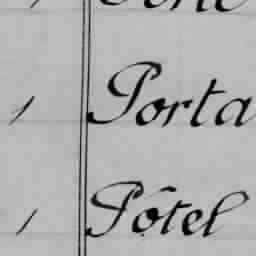 Porta
Pôtel